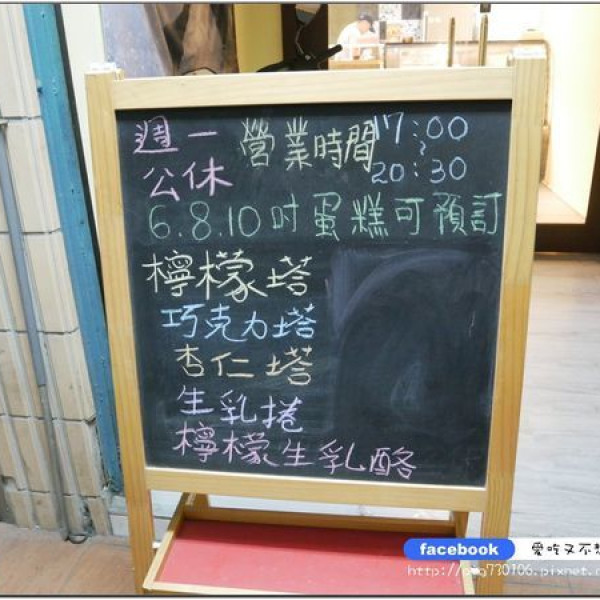 週一 營業時間 17:00
公休 ~ 20:30
6.8.10吋蛋糕可預訂
檸檬塔
巧克力塔
杏仁塔
生乳捲
檸檬生乳酪
facebook 愛吃又不想